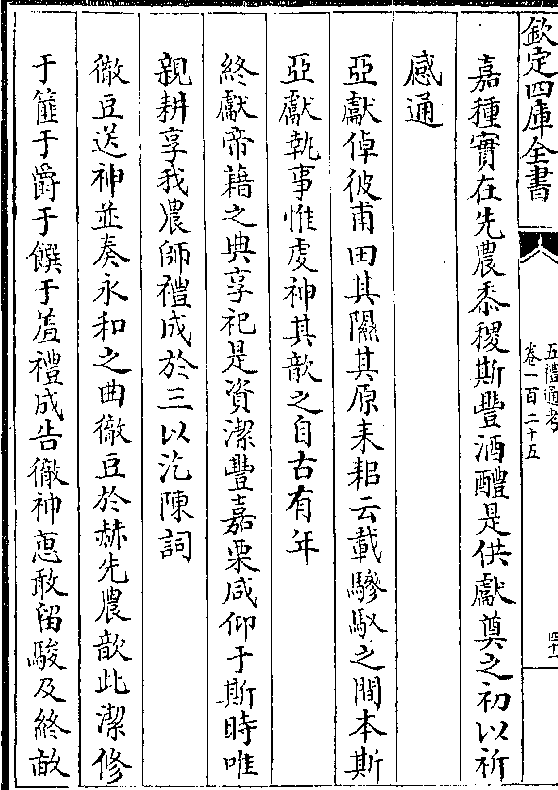 欽定四庫全書
五禮通考
卷一百二十五
四十一
嘉種實在先農黍稷斯豐酒醴是供獻奠之初以祈
感通
亞獻倬彼甫田其隰其原耒耜云載驂馭之間本斯
亞獻執事惟虔神其歆之自古有年
終獻帝藉之典享祀是資潔豐嘉栗咸仰于斯時唯
親耕享我農師禮成於三以訖陳詞
徹豆送神並奏永和之曲徹豆於赫先農歆此潔修
于篚于爵于饌于羞禮成告徹神惠敢留駿及終畝